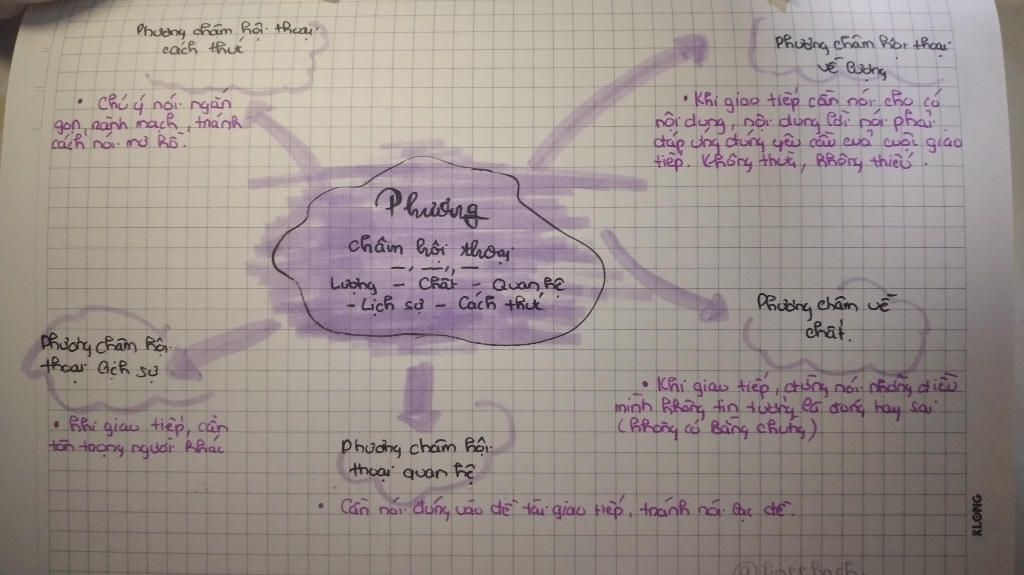 Phương châm hội thoại
cách thức
• Chú ý nói ngắn
gọn, rành mạch, tránh
cách nói mơ hồ.
Phương châm hội thoại
về lượng
• Khi giao tiếp cần nói cho có
nội dung, nội dung lời nói phải
đáp ứng đúng yêu cầu của cuộc giao
tiếp. Không thừa, không thiếu.
Phương
châm hội thoại
Lượng - Chất - Quan hệ
- Lịch sự - Cách thức
Phương châm về
chất.
• Khi giao tiếp, đừng nói những điều
mình không tin tưởng là đúng hay sai
(không có bằng chứng)
Phương châm hội
thoại lịch sự
• Khi giao tiếp, cần
tôn trọng người khác
Phương châm hội
thoại quan hệ
• Cần nói đúng vào đề tài giao tiếp, tránh nói lạc đề.
KLONG